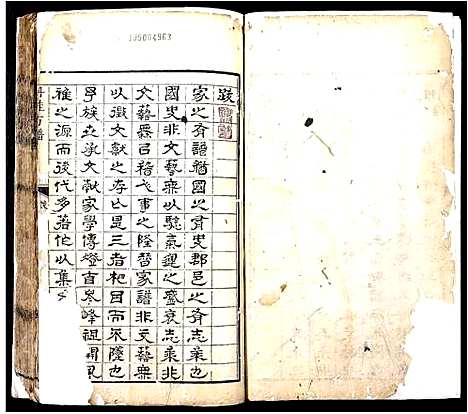 195004963
跋
家之有譜猶國之有史郡邑之有志葉也
國史非文藝無以驗氣運之盛衰志乘非
文藝無以稽人事之隆替家譜非文藝無
以徵文獻之存亡是三者相目而不墐也
吾族 承文獻家學傳燈自岑峰祖開風
雅之源而後代多著作以集